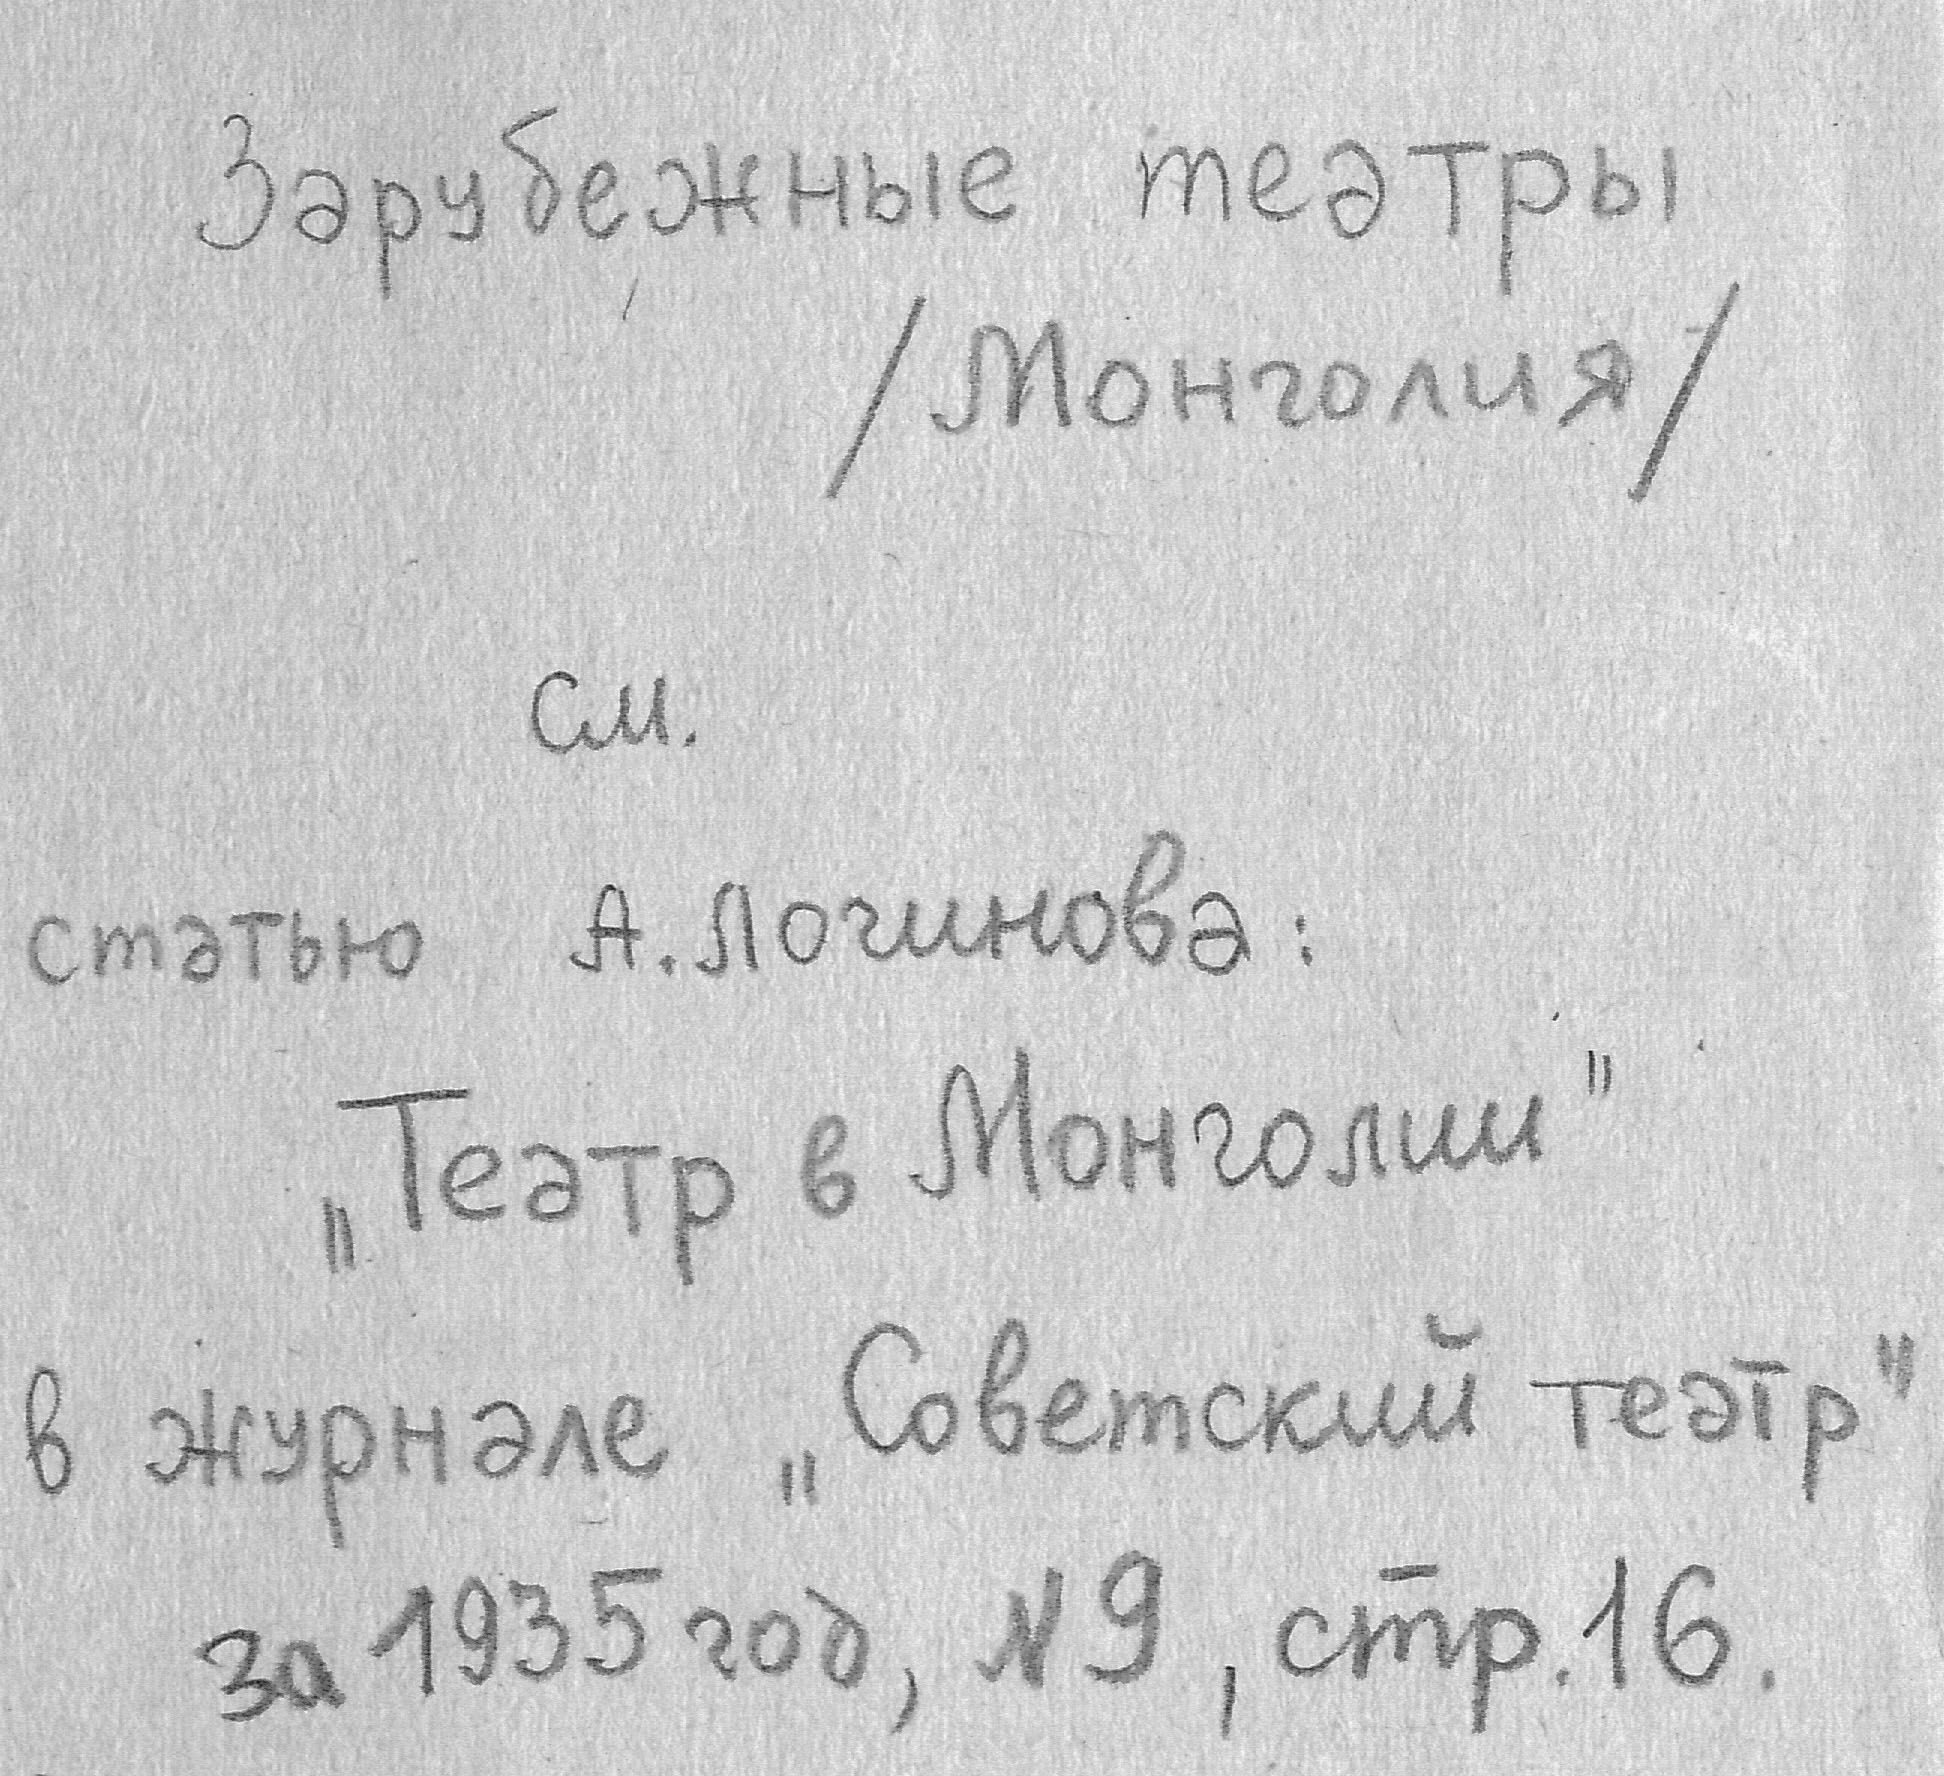 Зарубежные театры
/Монголия/
см.
статью А. Логинова:
„Театр в Монголии"
в журнале „Советский театр"
за 1935 год, N 9, стр. 16.